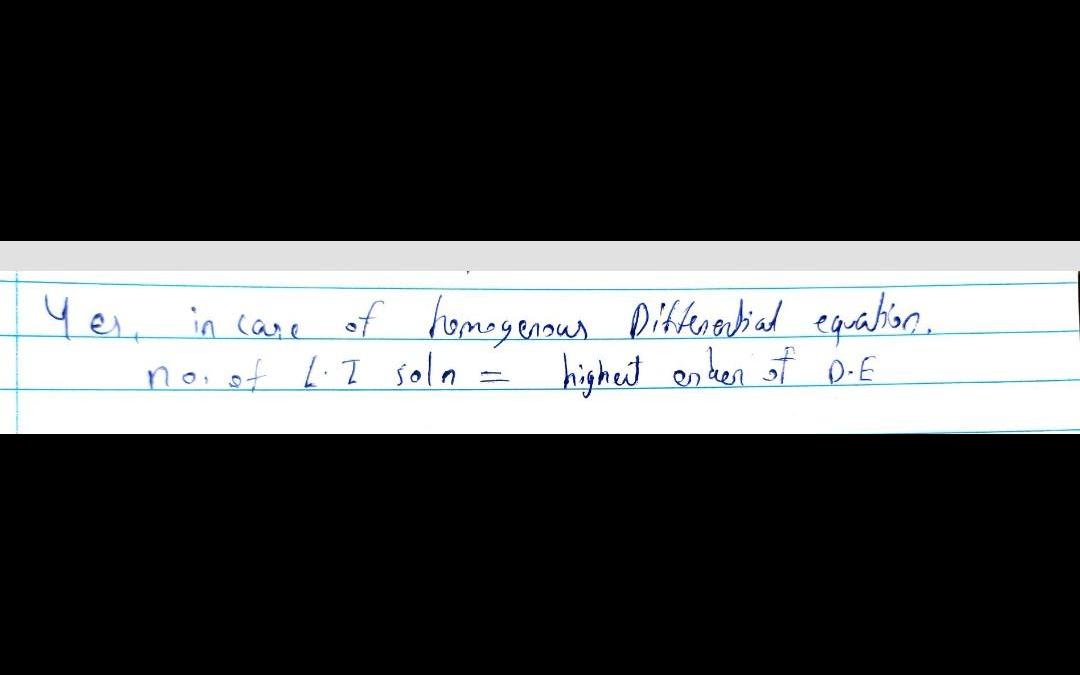 Yes, in case of homogenous Differential equation.
no. of L.I soln = highest order of D.E